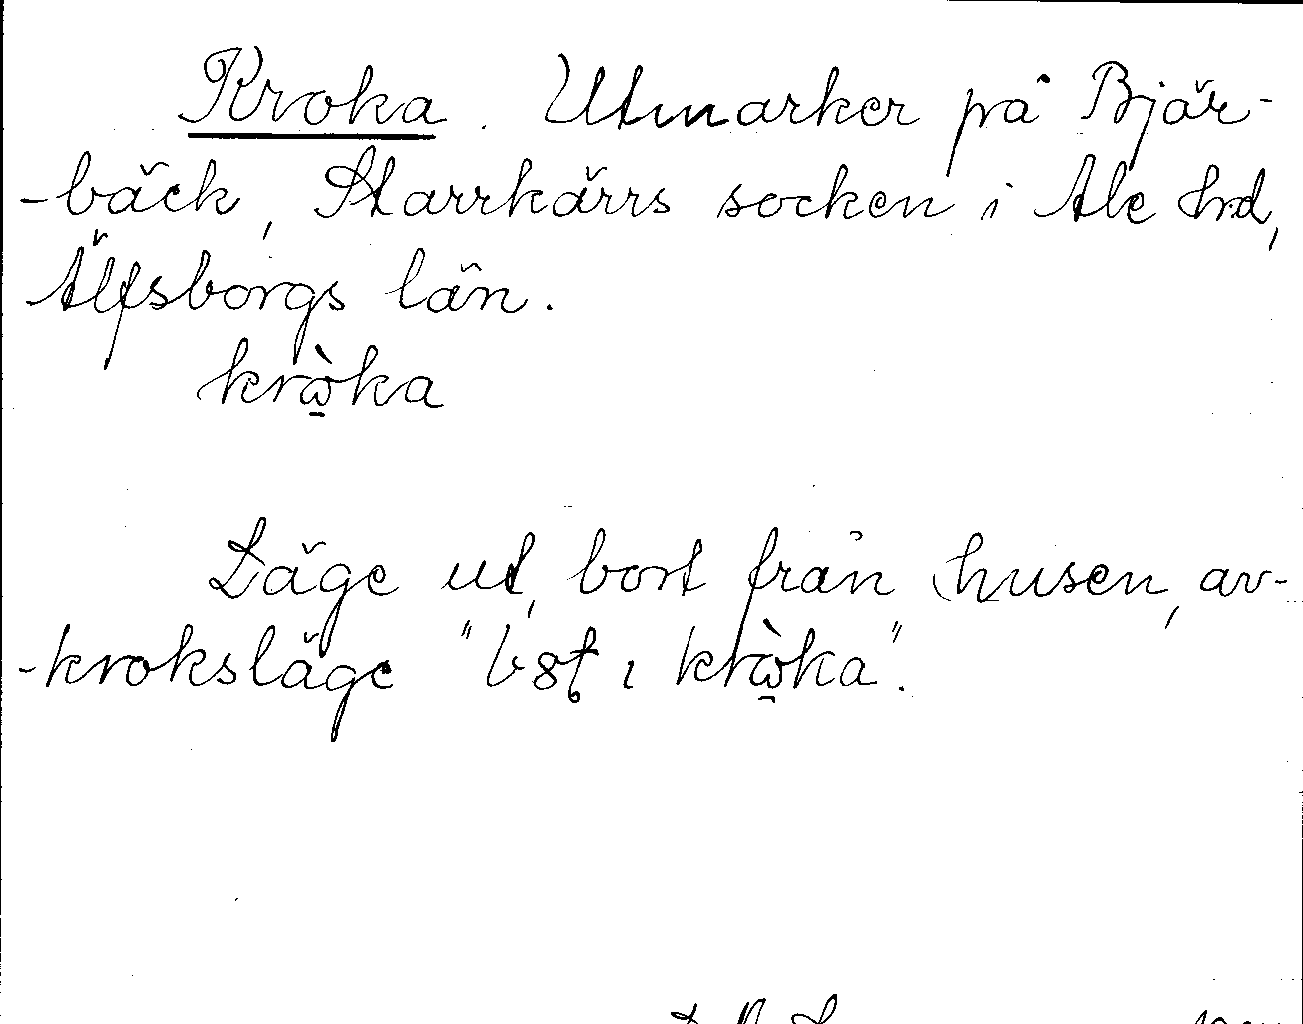 Kroka. Utmarker på Bjär-
-bäck, Starrkärrs socken i Ale hrd,
Älfsborgs län.
krὼ̱ka
Läge ut, bort från husen, av-
-kroksläge "ı krὼ̱ka".